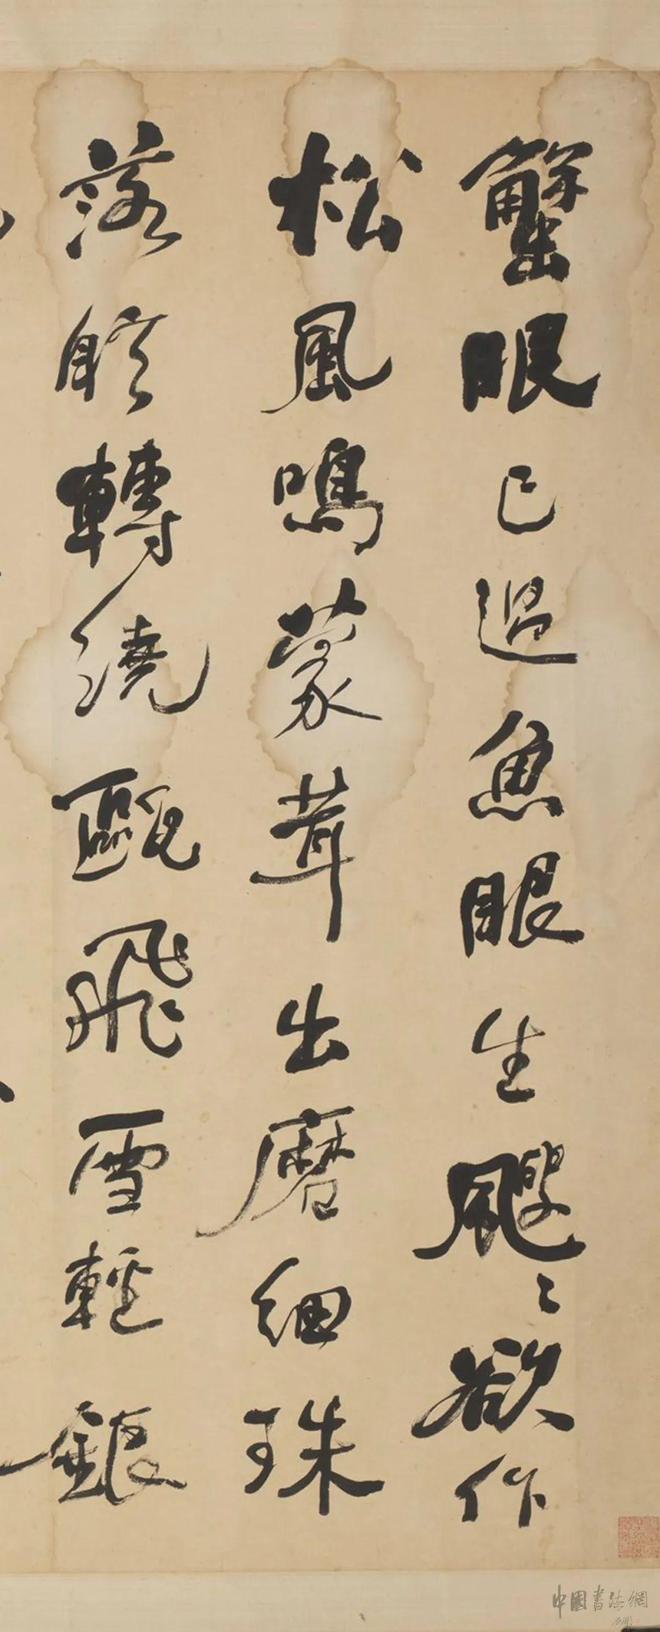 蟹眼已過魚眼生颼〻欲作
松風鳴蒙茸出磨細珠
落眩轉遶甌飛雪輕銀
中國書法網